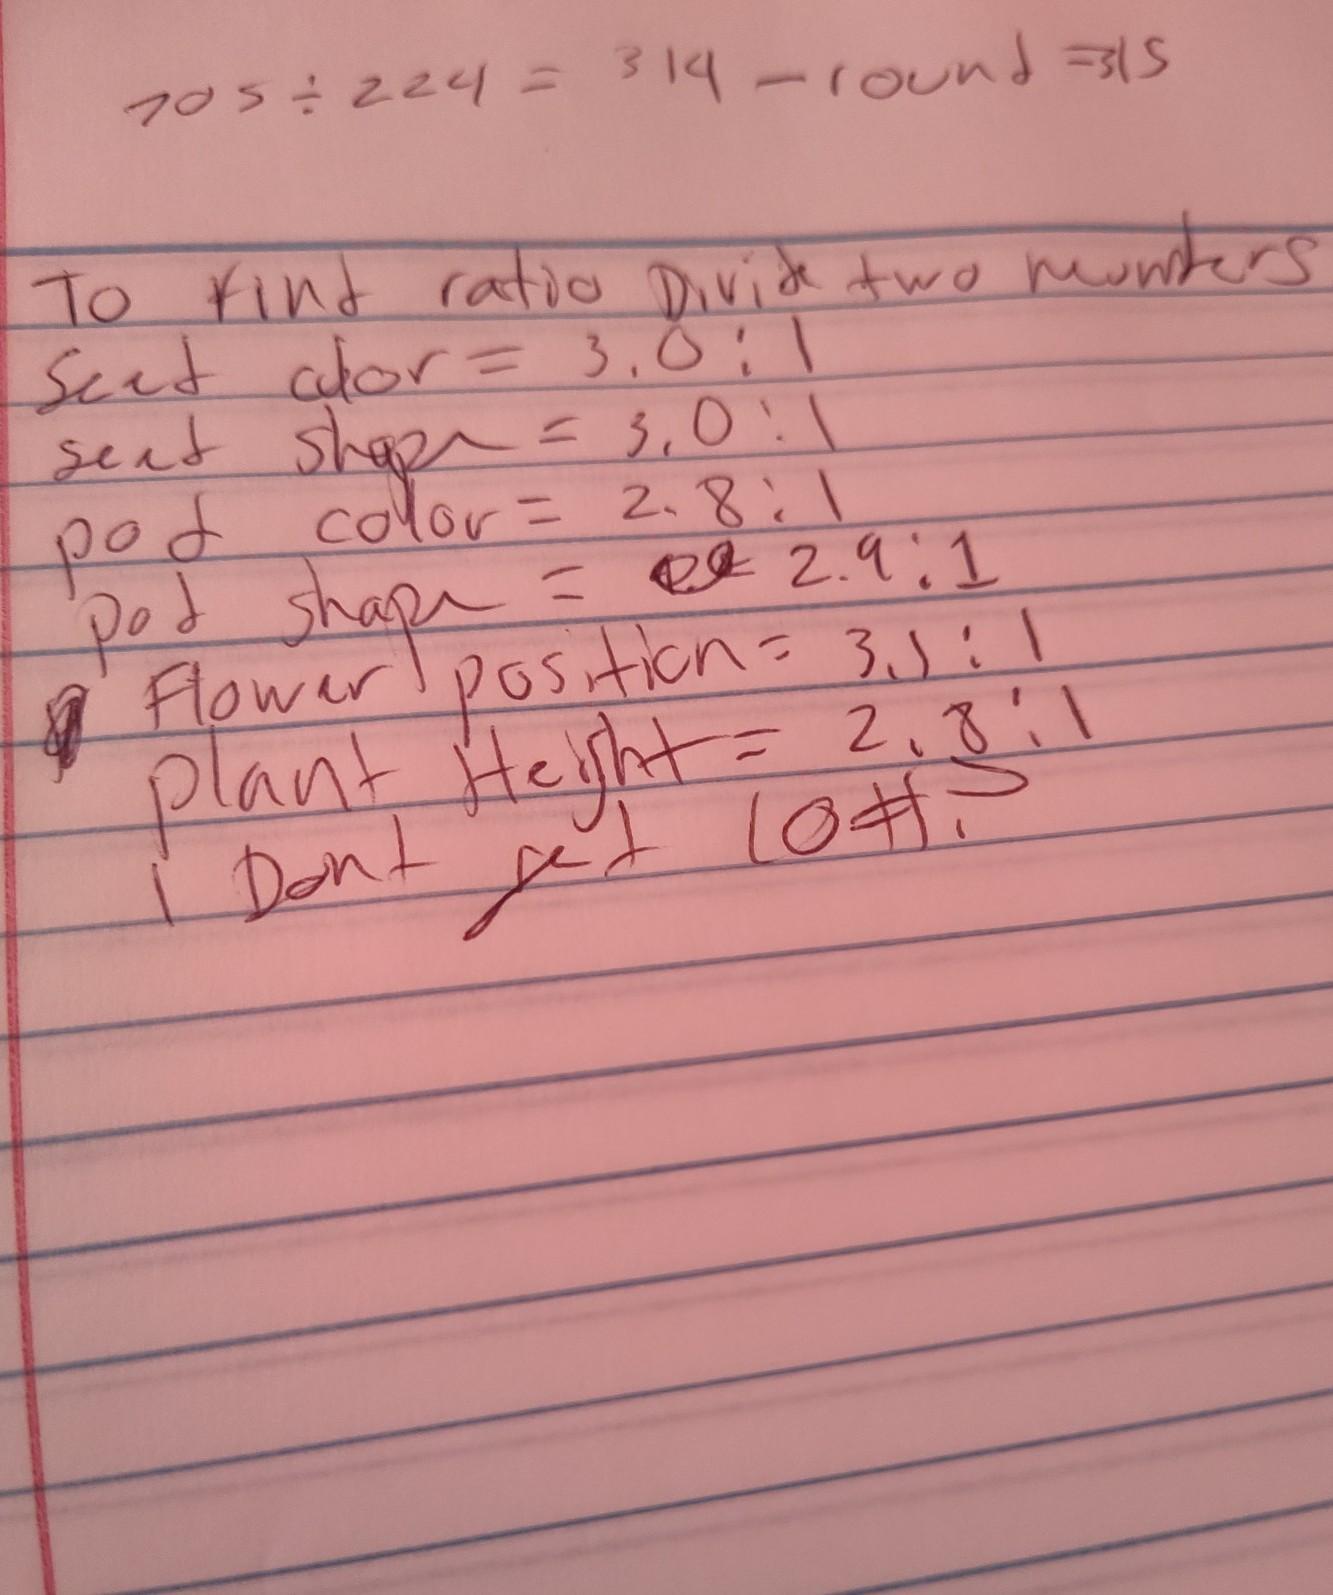 705 ÷ 224 = 314 - round = 315
To Find ratio Divide two numbers
Seed color = 3.0 : 1
seed shape = 3.0 : 1
pod color = 2.8 : 1
pod shape = 2.9 : 1
Flower position = 3.1 : 1
plant Height = 2.8 : 1
I Dont get 10 #?